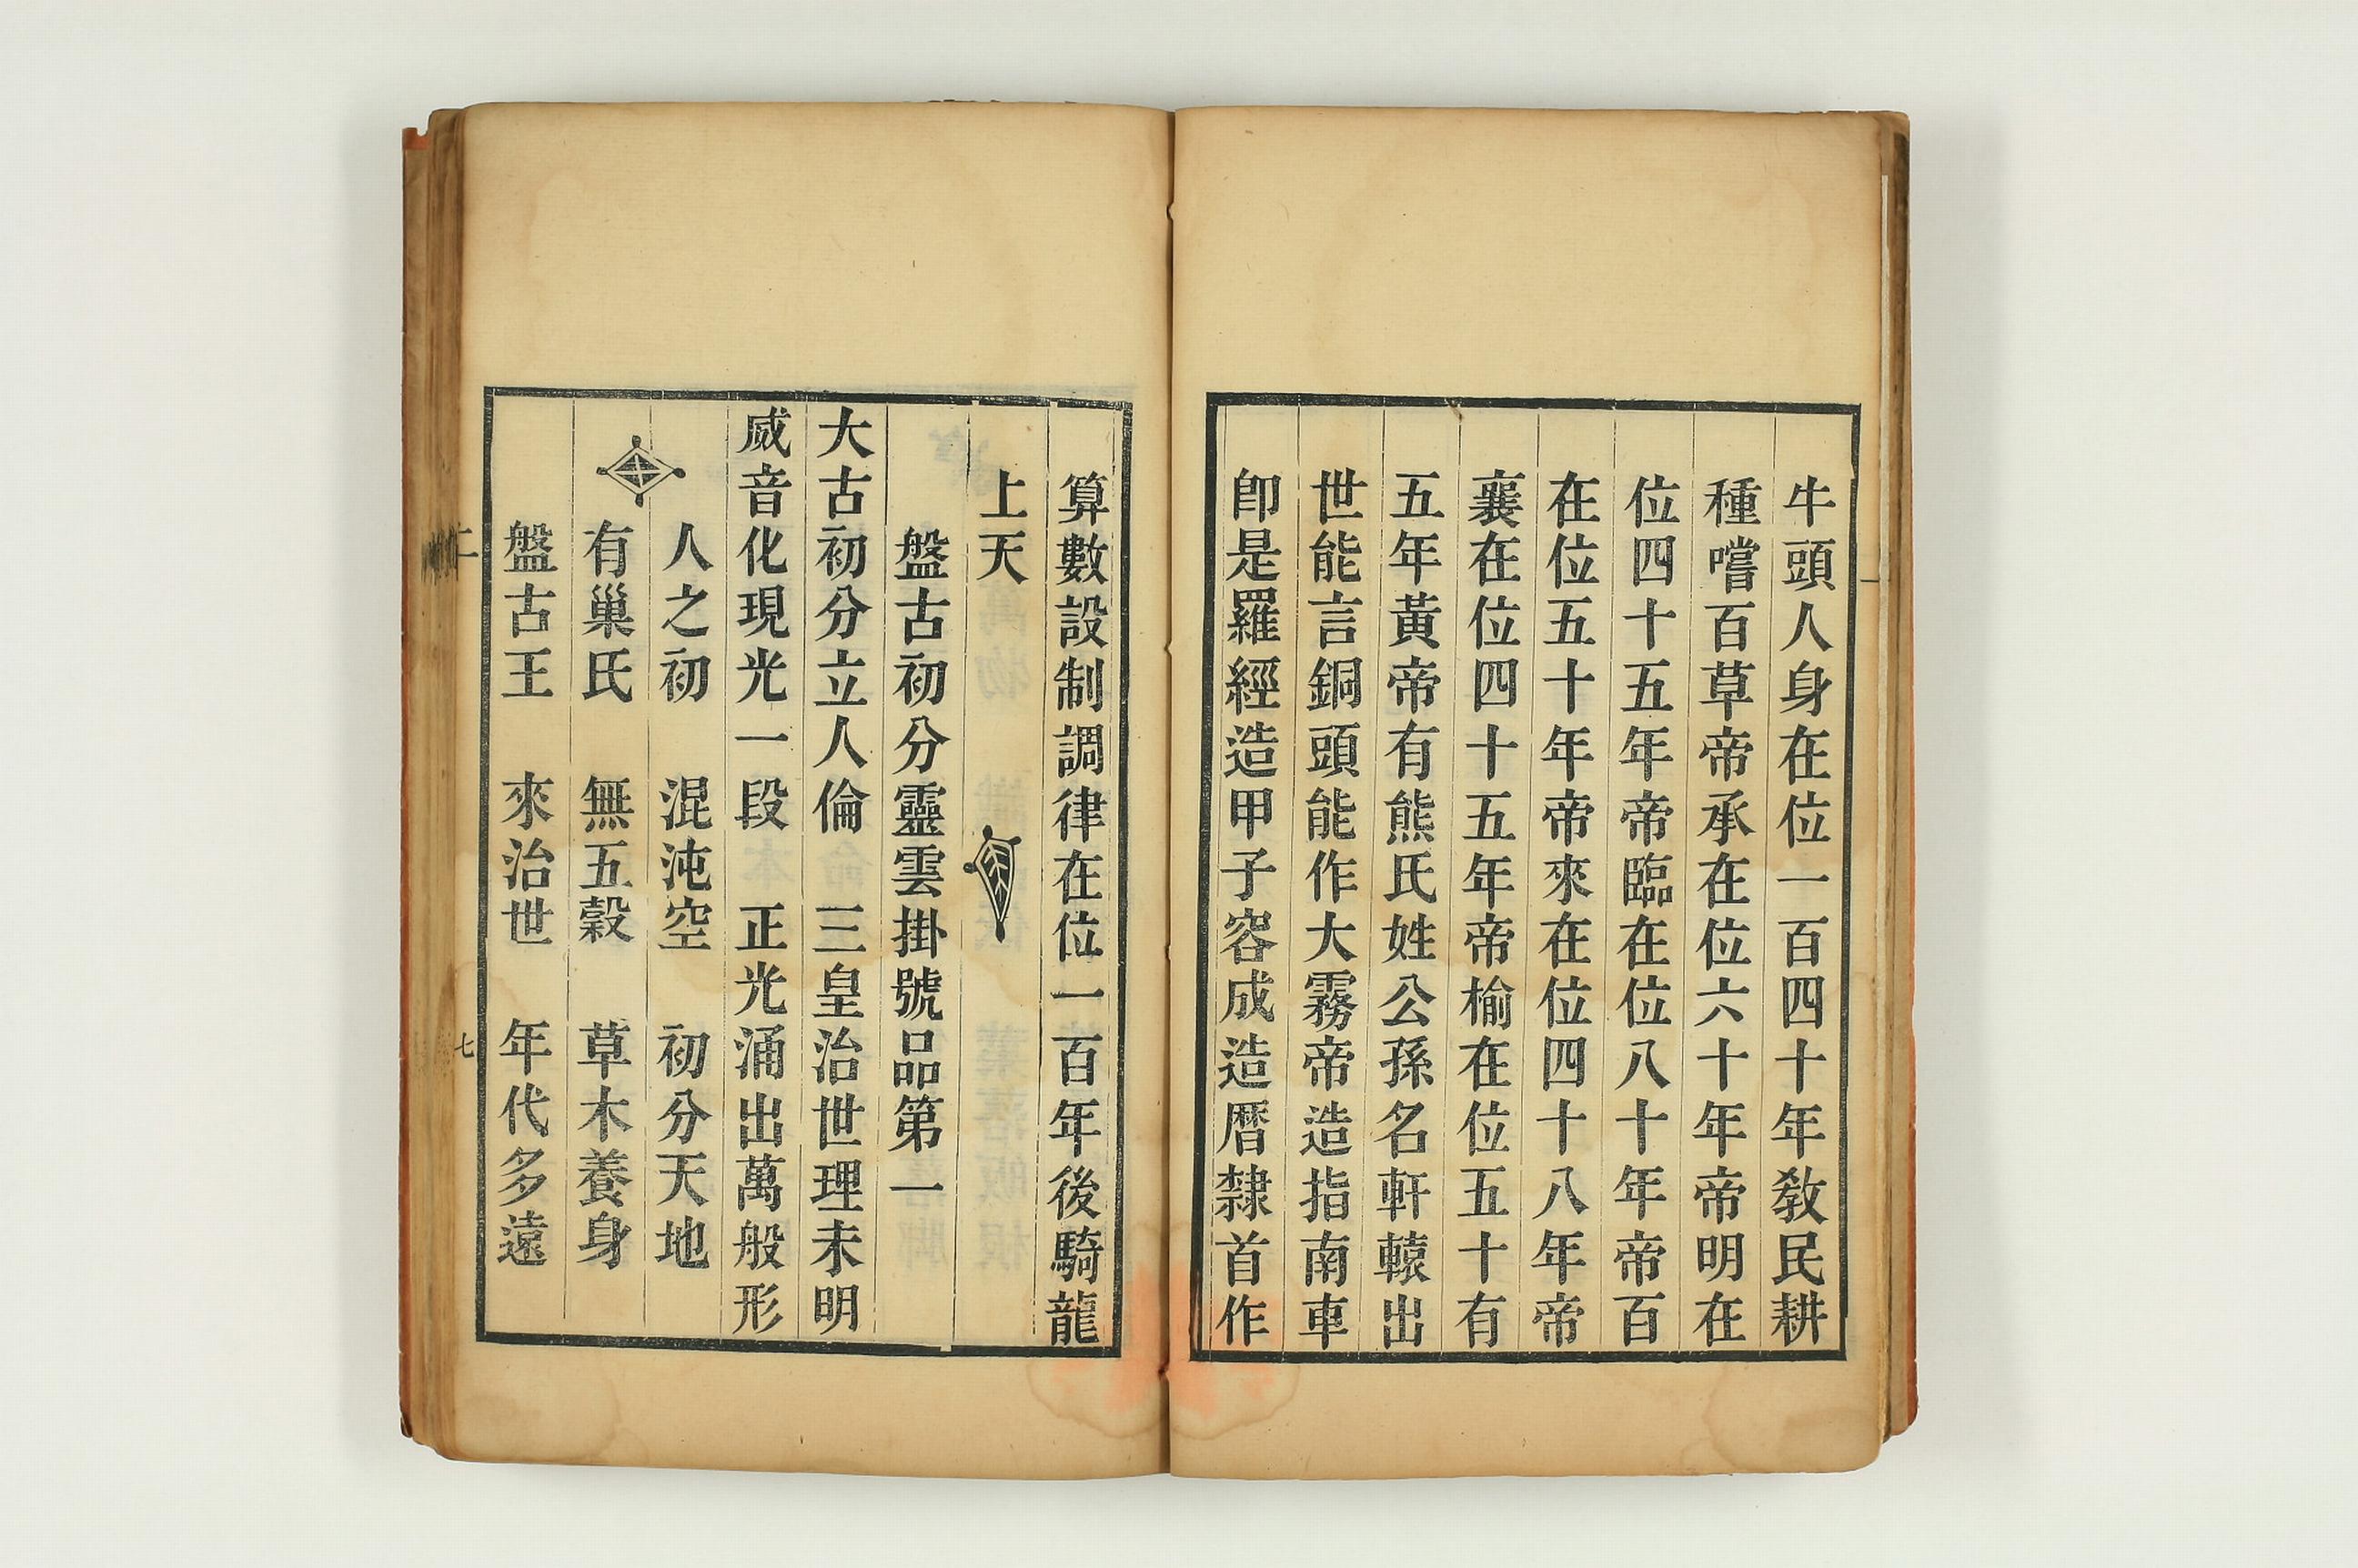 牛頭人身在位一百四十年教民耕
種嚐百草帝承在位六十年帝明在
位四十五年帝臨在位八十年帝百
在位五十年帝來在位四十八年帝
襄在位四十五年帝榆在位五十有
五年黃帝有熊氏姓公孫名軒轅出
世能言銅頭能作大霧帝造指南車
卽是羅經造甲子容成造曆隸首作
算數設制調律在位一百年後騎龍
上天
盤古初分靈雲掛號品第一
大古初分立人倫 三皇治世理未明
威音化現光一段 正光涌出萬般形
人之初 混沌空 初分天地
有巢氏 無五穀 草木養身
盤古王 來治世 年代多遠
二 七